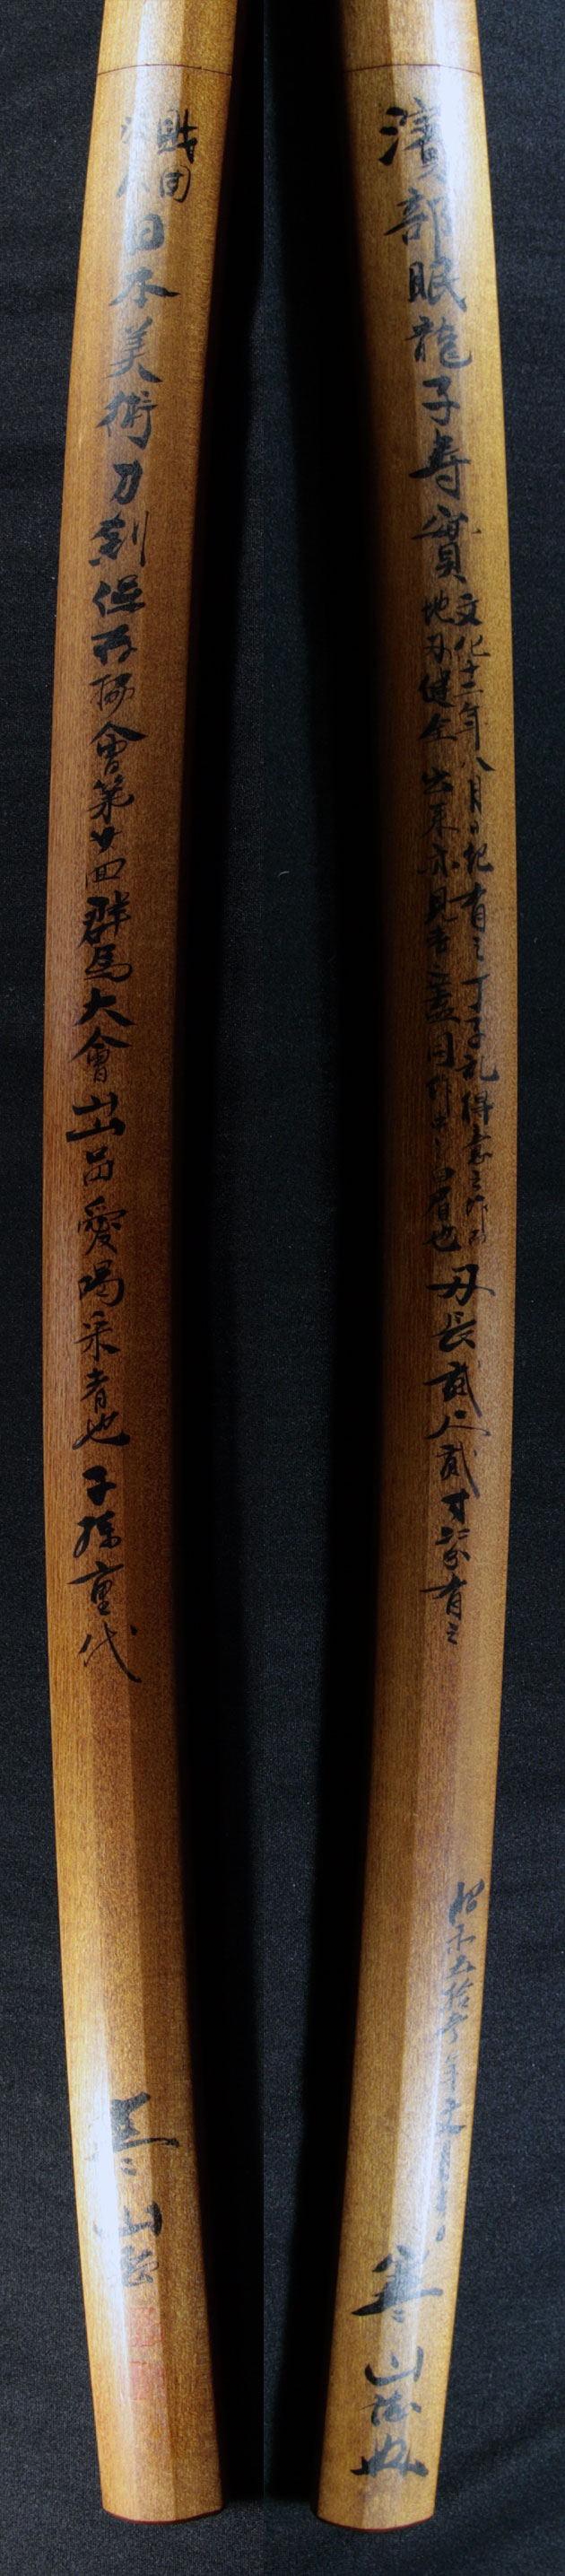 濱部眠龍子寿實
文化十二年八月日紀有之丁子乱得意之作而
地刃健全出来亦見事蓋同作中之白眉也
刃長貳尺貳寸
有之
昭和五拾
年文月
寒山誌
財団法人
日本美術刀剣保存協會第廿回群馬大會出品愛喝采者也子孫重代
寒山